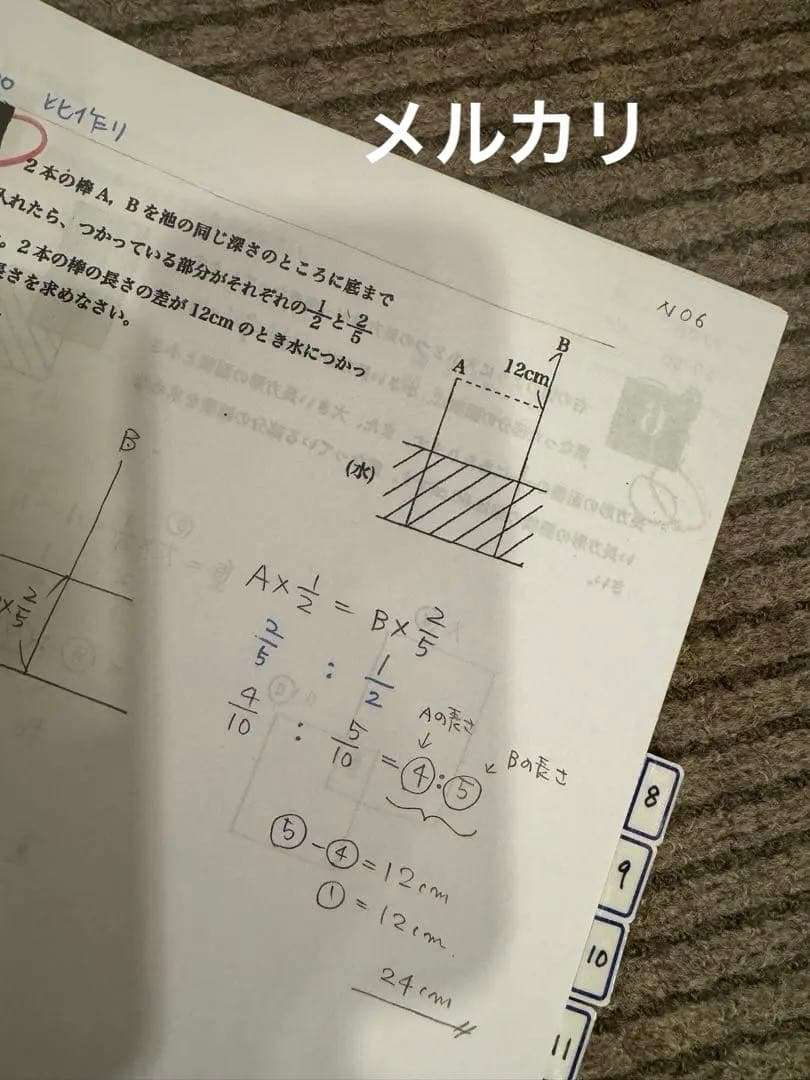 比作り
メルカリ
2本の棒A，Bを池の同じ深さのところに底まで
入れたら、つかっている部分がそれぞれの1/2と2/5
。2本の棒の長さの差が12cmのとき水につかっ
長さを求めなさい。
N06
B
12cm
A
(水)
B
×2/5
A×1/2=B×2/5
2/5:1/2
Aの長さ
Bの長さ
4/10:5/10=④:⑤
⑤-④=12cm
①=12cm.
24cm
8
9
10
11